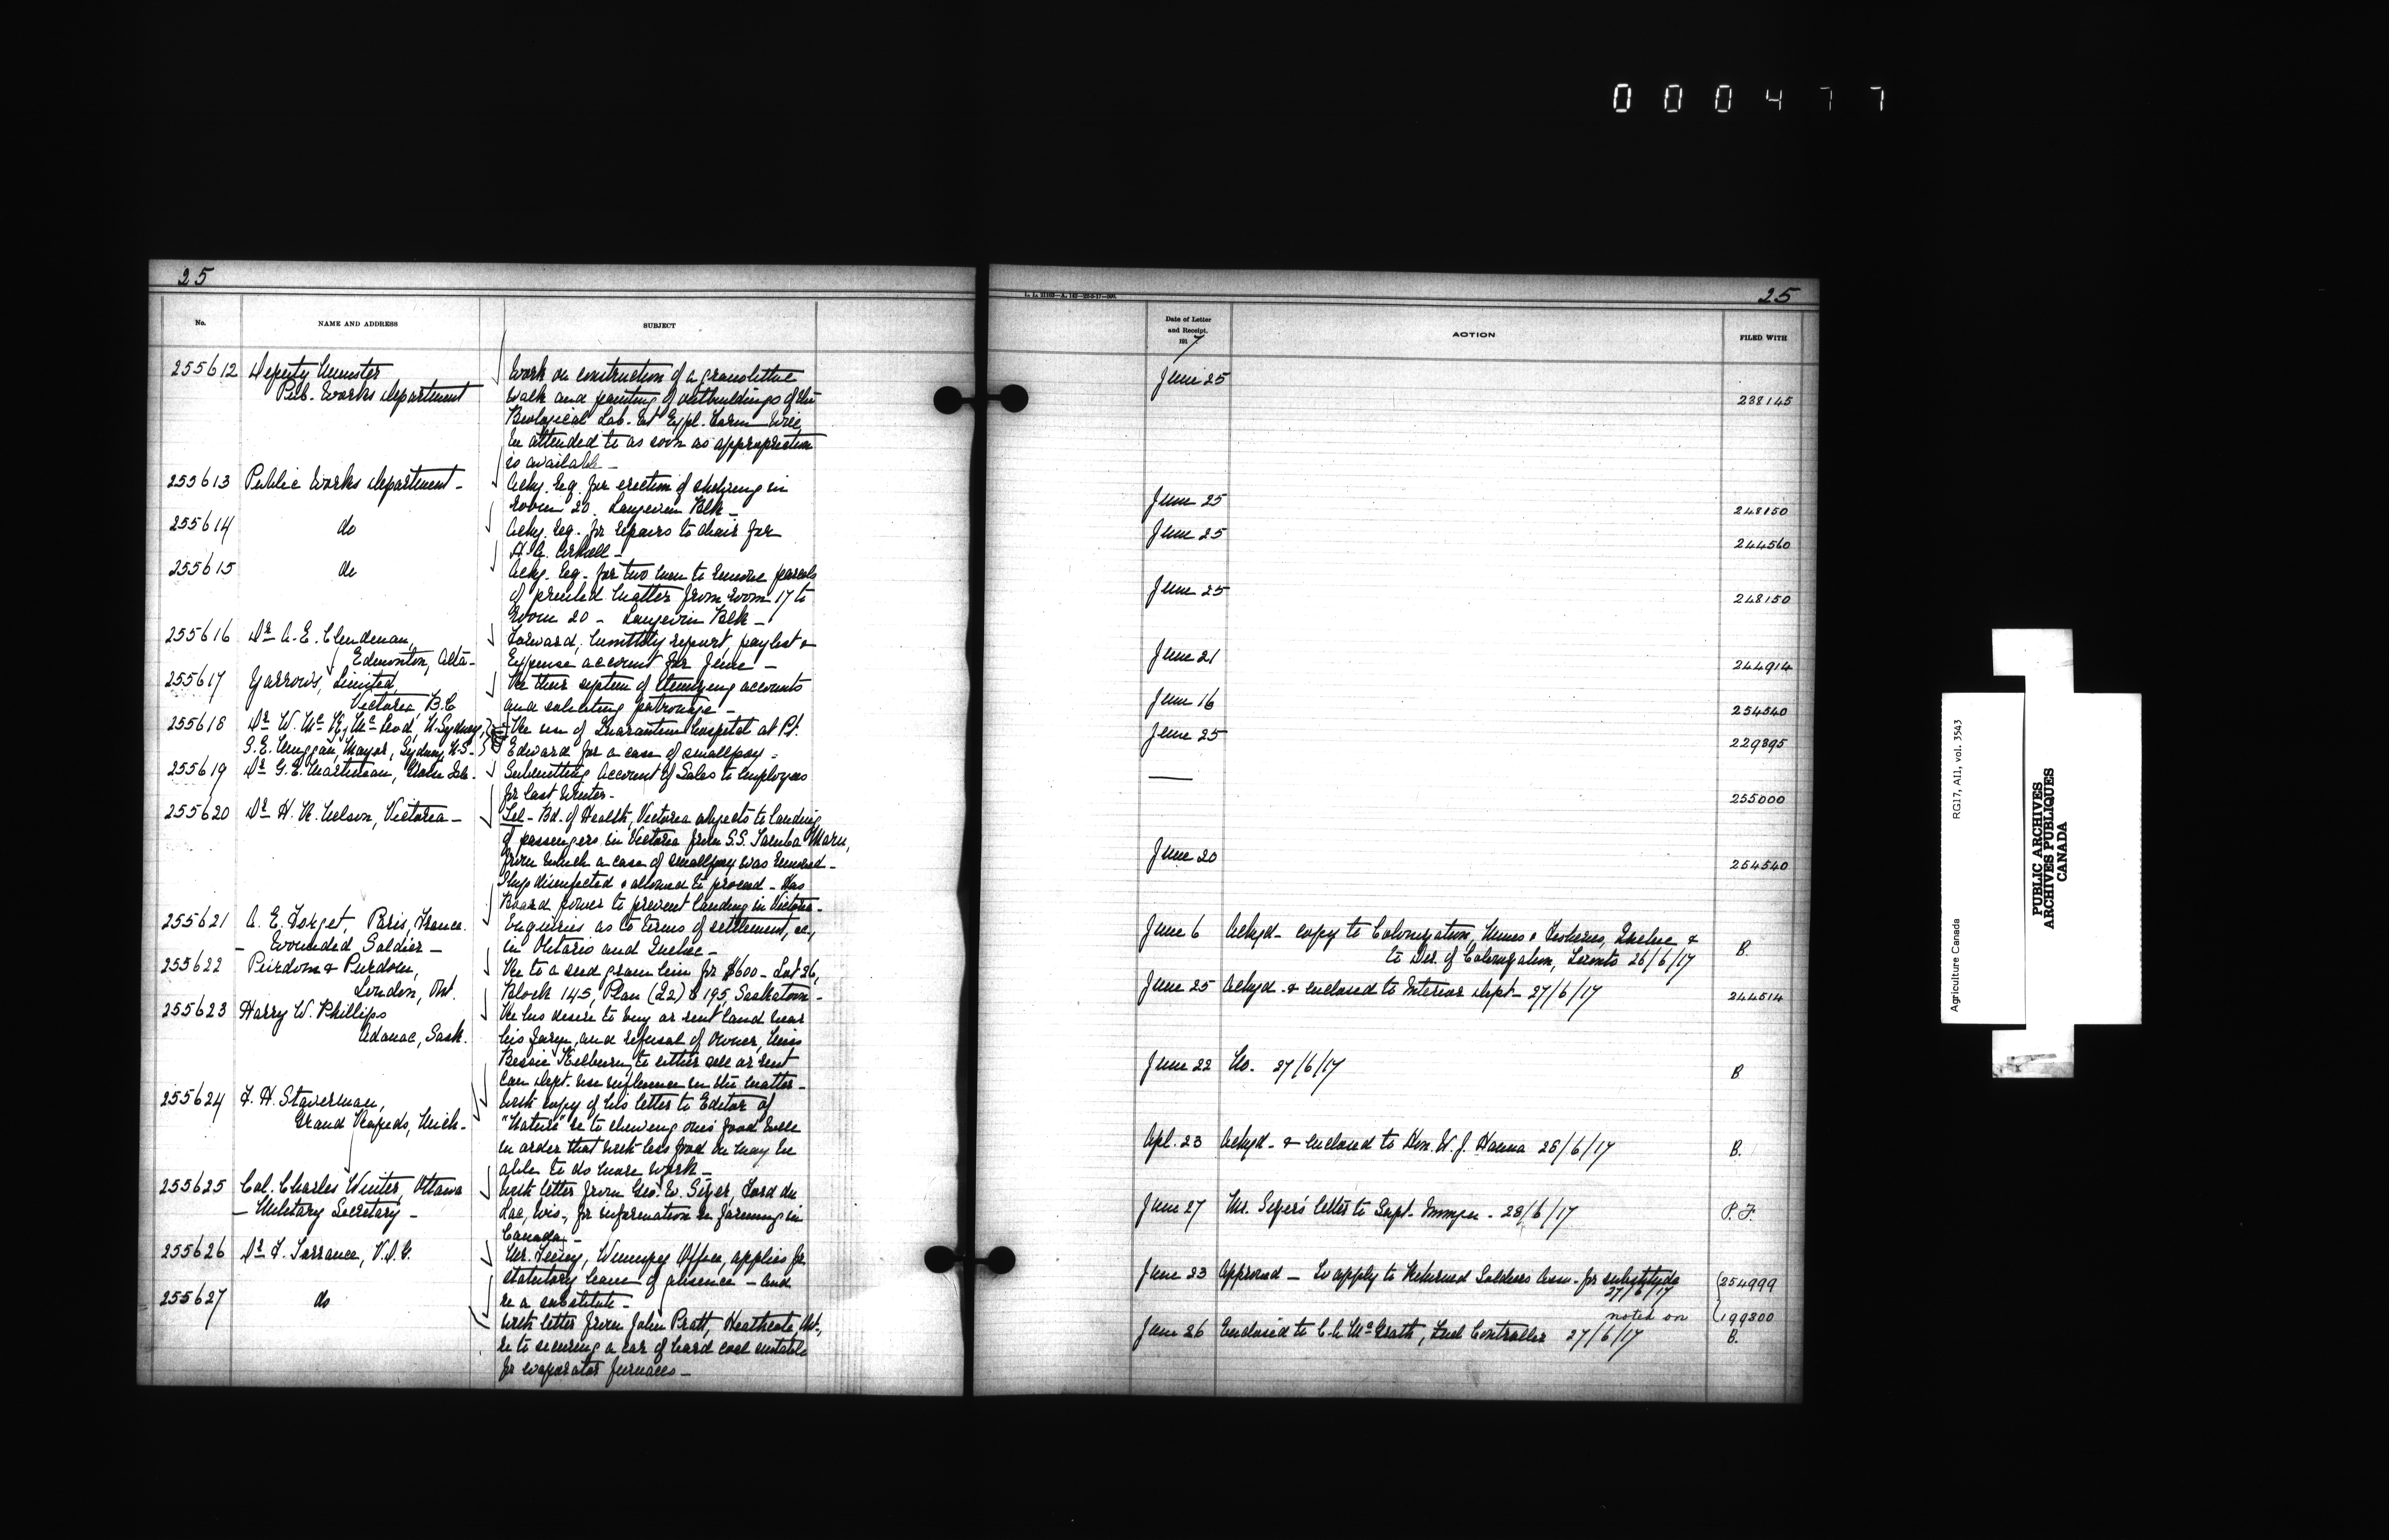 000477
25
No.
NAME AND ADDRESS
SUBJECT
255612 Deputy Minister
Pub. Works Department
Work on construction of a granolithic
walk and painting of outbuildings of the
Biological Lab. at Expl. Farm will
be attended to as soon as appropriation
is available —
255613 Public Works Department —
Ackg. Req. for erection of shelving in
Room 20. Langevin Blk —
255614 do
Ackg. Req. for repairs to chair for
255615 do
Ackg. Req. for two men to remove parcels
of printed matter from room 17 to
Room 20 — Langevin Blk —
255616 Dr A. E. Clendenan,
Edmonton, Alta —
Forward, monthly report, paylist &
Expense account for June —
255617 Yarrows, Limited,
Victoria, B.C
Re their system of itemizing accounts
and soliciting patronage —
255618 Dr W. Mc K. Mc Leod, N. Sydney,
Mayor, Sydney, N.S.
Re use of Quarantine hospital at Pt.
Edward for a case of smallpox —
255619 Dr G. E. Martineau, Grosse Isle.
Submitting Account of Sales to employees
for last Winter —
255620 Dr H. R. Nelson, Victoria —
Tel — Bd. of Health, Victoria objects to landing
of passengers in Victoria from S.S. Maru,
from which a case of smallpox was removed —
Ship disinfected & allowed to proceed — Has
Board power to prevent landing in Victoria —
255621 A. E. Forget, Paris, France.
— Wounded Soldier —
Enquiries as to terms of settlement, &c,
in Ontario and Quebec —
255622 Purdom & Purdom,
London, Ont.
Re to a seed grain lien for $600 — Lot 26,
Block 145, Plan (Q2) 195, Saskatoon —
255623 Harry W. Phillips
Adanac, Sask.
Re his desire to buy or rent land near
his farm, and refusal of owner, Miss
Bessie Kelburn, to either sell or rent
Can Dept. use influence in the matter —
255624 F. H. Staverman,
Grand Rapids, Mich —
with copy of his letter to Editor of
"Nature" re to chewing one's food well
in order that with less food we may be
able to do more work —
255625 Col. Charles Winter, Ottawa
— Military Secretary —
With letter from Geo. W. Fond du
Lac, Wis., for information re farming in
Canada —
255626 Dr F. Torrance, V.D.G.
Winnipeg Office, applies for
statutory leave of absence — and
re a substitute —
255627 do
With letter from John Pratt, Heathcote, Ont.,
re to securing a car of hard coal suitable
for evaporator furnaces —
25
Date of Letter
and Receipt.
1917
ACTION
FILED WITH
June 25
238145
June 25
248150
June 25
244560
June 25
248150
June 21
244914
June 16
254540
June 25
229895
—
255000
June 20
254540
June 6 Ackgd — copy to Colonization, Mines & Fisheries, Quebec &
to Dir. of Colonization, Toronto 26/6/17 B.
June 25 Ackgd — & enclosed to Interior Dept — 27/6/17 244514
June 22 No. 27/6/17 B
Apl. 23 Ackgd — & enclosed to Hon. W. J. Hanna 28/6/17 B.
June 27 letter to Supt. Immgn — 28/6/17 P. F.
June 23 Approved — To apply to Returned Soldiers Assn — for substitute
27/6/17
254999
noted on 199300
June 26 Enclosed to C. A. McGrath, Fuel Controller 27/6/17 B.
Agriculture Canada RG17, AII, vol. 3543
PUBLIC ARCHIVES
ARCHIVES PUBLIQUES
CANADA